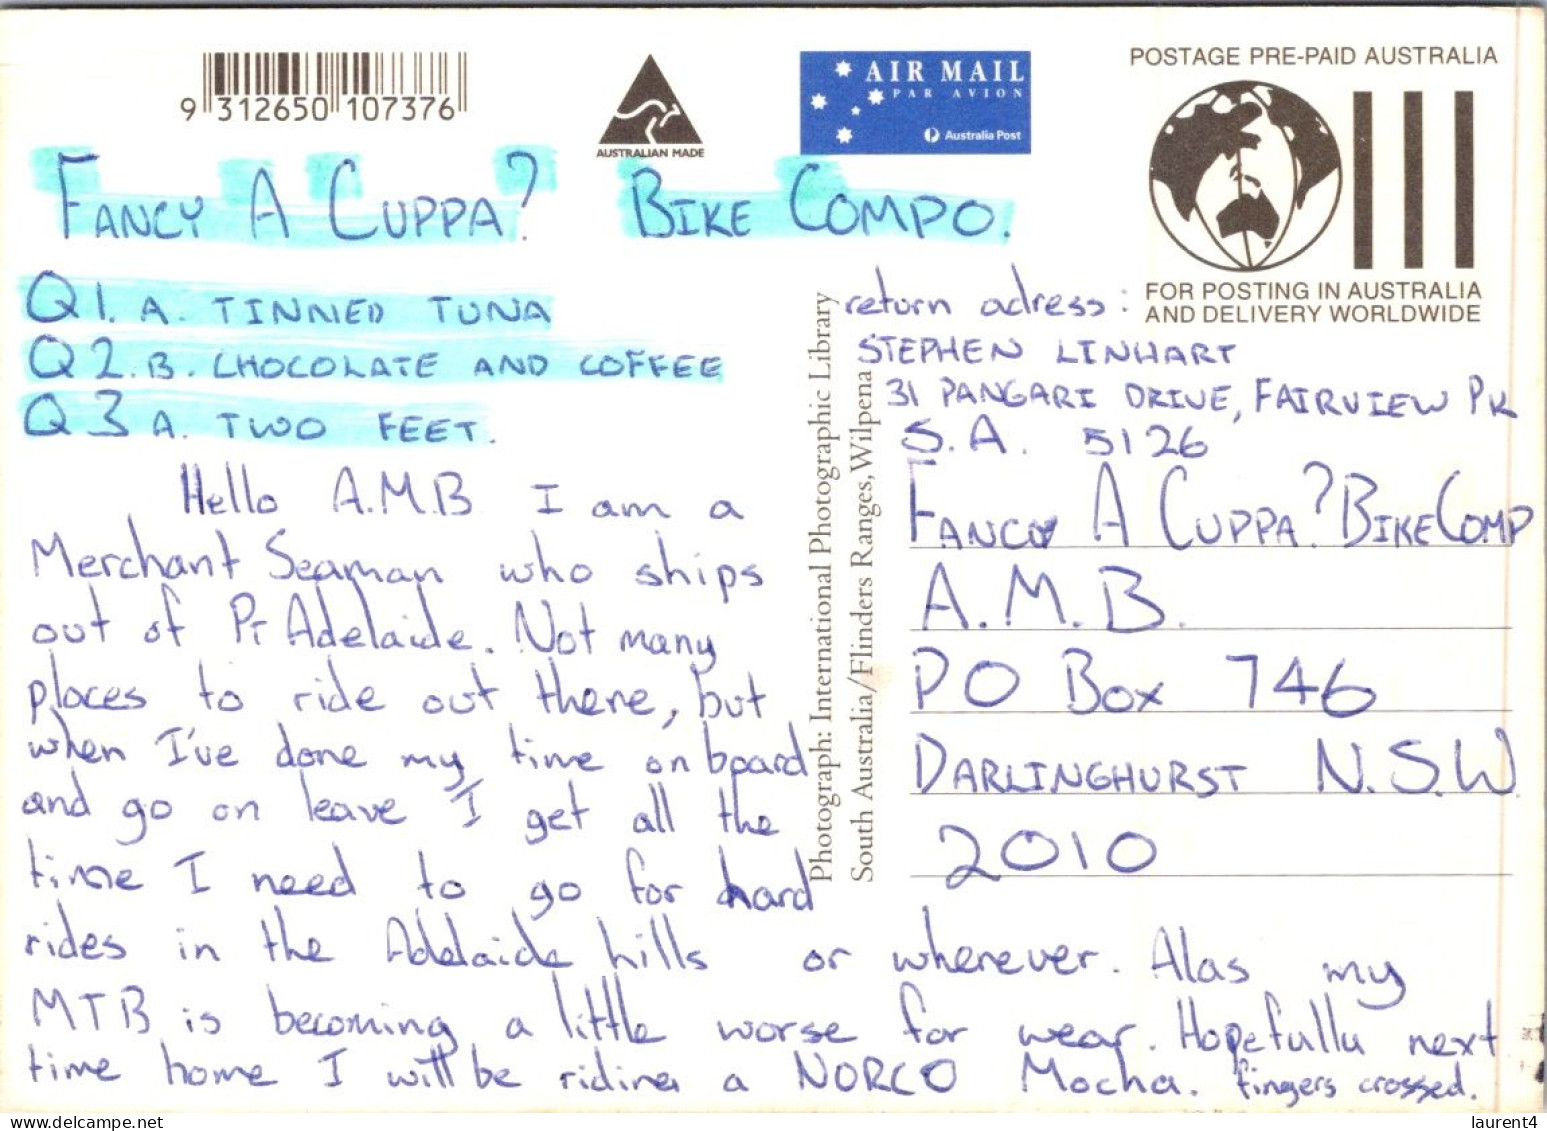 9 312650 107376
AUSTRALIAN MADE
AIR MAIL
PAR AVION
Australia Post
POSTAGE PRE-PAID AUSTRALIA
FOR POSTING IN AUSTRALIA
AND DELIVERY WORLDWIDE
FANCY A CUPPA? BIKE COMPO.
Q1. A. TINNED TUNA
Q2. B. CHOCOLATE AND COFFEE
Q3 A. TWO FEET.
Hello A.M.B I am a
Merchant Seaman who ships
out of Pt Adelaide. Not many
places to ride out there, but
when I've done my time on board
and go on leave I get all the
time I need to go for hard
rides in the Adelaide hills or wherever. Alas my
MTB is becoming a little worse for wear. Hopefully next
time home I will be riding a NORCO Mocha. fingers crossed.
Photograph: International Photographic Library
South Australia/Flinders Ranges, Wilpena
return adress:
STEPHEN LINHART
31 PANGARI DRIVE, FAIRVIEW PK
S.A. 5126
FANCY A CUPPA? BIKE COMP
A.M.B.
PO Box 746
DARLINGHURST N.S.W.
2010
laurent4